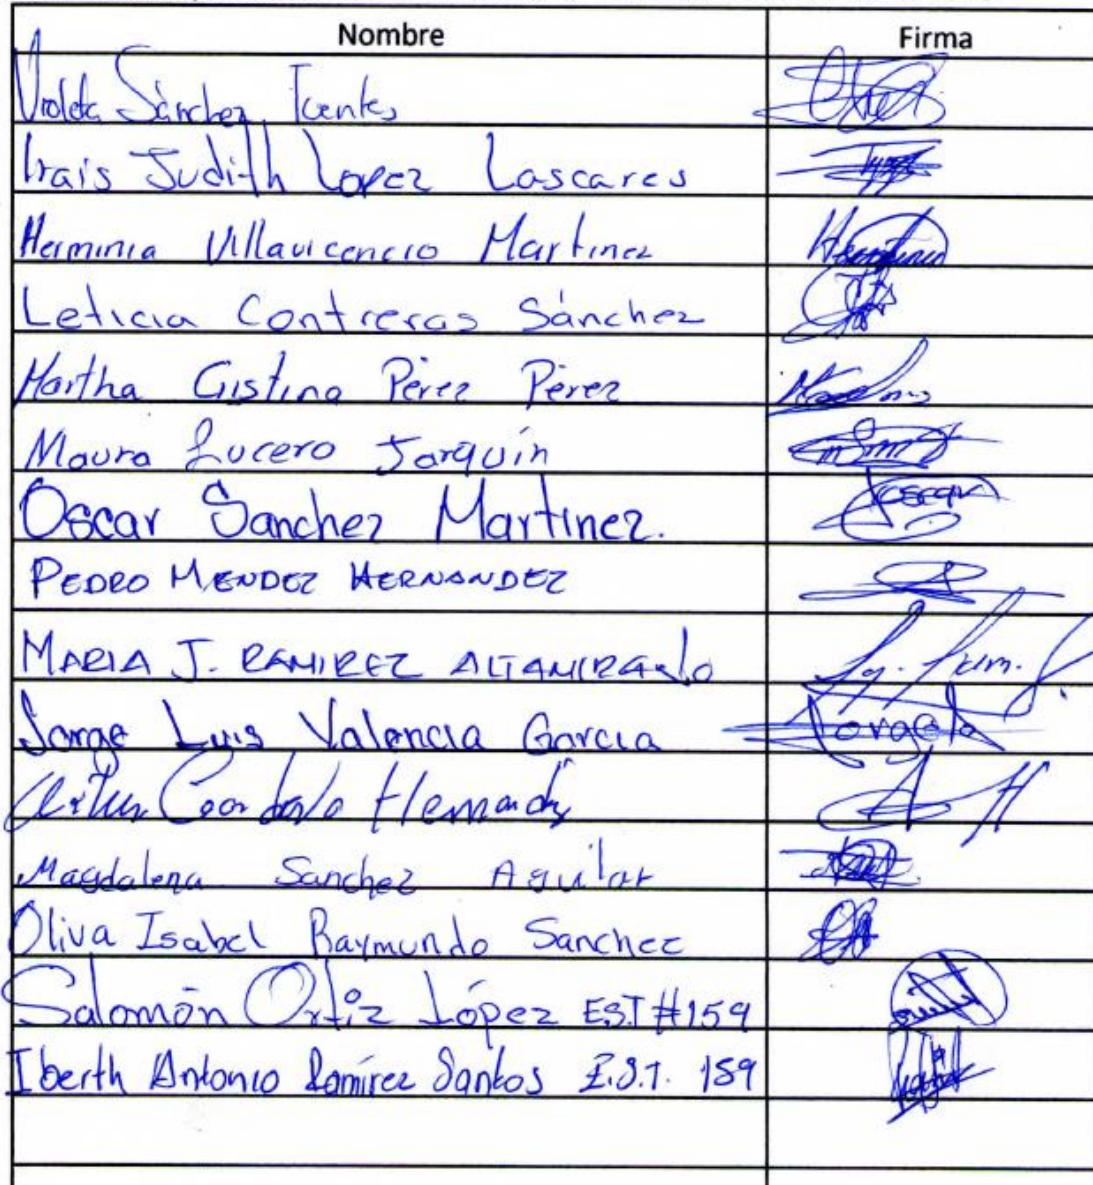 Nombre Firma
Violeta Sánchez Fuentes
Irais Judith Lopez Lascares
Herminia Villavicencio Martinez Herminia
Leticia Contreras Sánchez
Martha Cristina Pérez Pérez
Maura Lucero Jarquín
Oscar Sanchez Martinez. Joscar
PEDRO MENDEZ HERNANDEZ
MARIA J. RAMIREZ ALTAMIRANO
Jorge Luis Valencia Garcia Jorge
Hernandez
Magdalena Sanchez Aguilar
Oliva Isabel Raymundo Sanchez
Salomón Ortiz López EST #159
Iberth Antonio Ramírez Santos E.S.T. 159